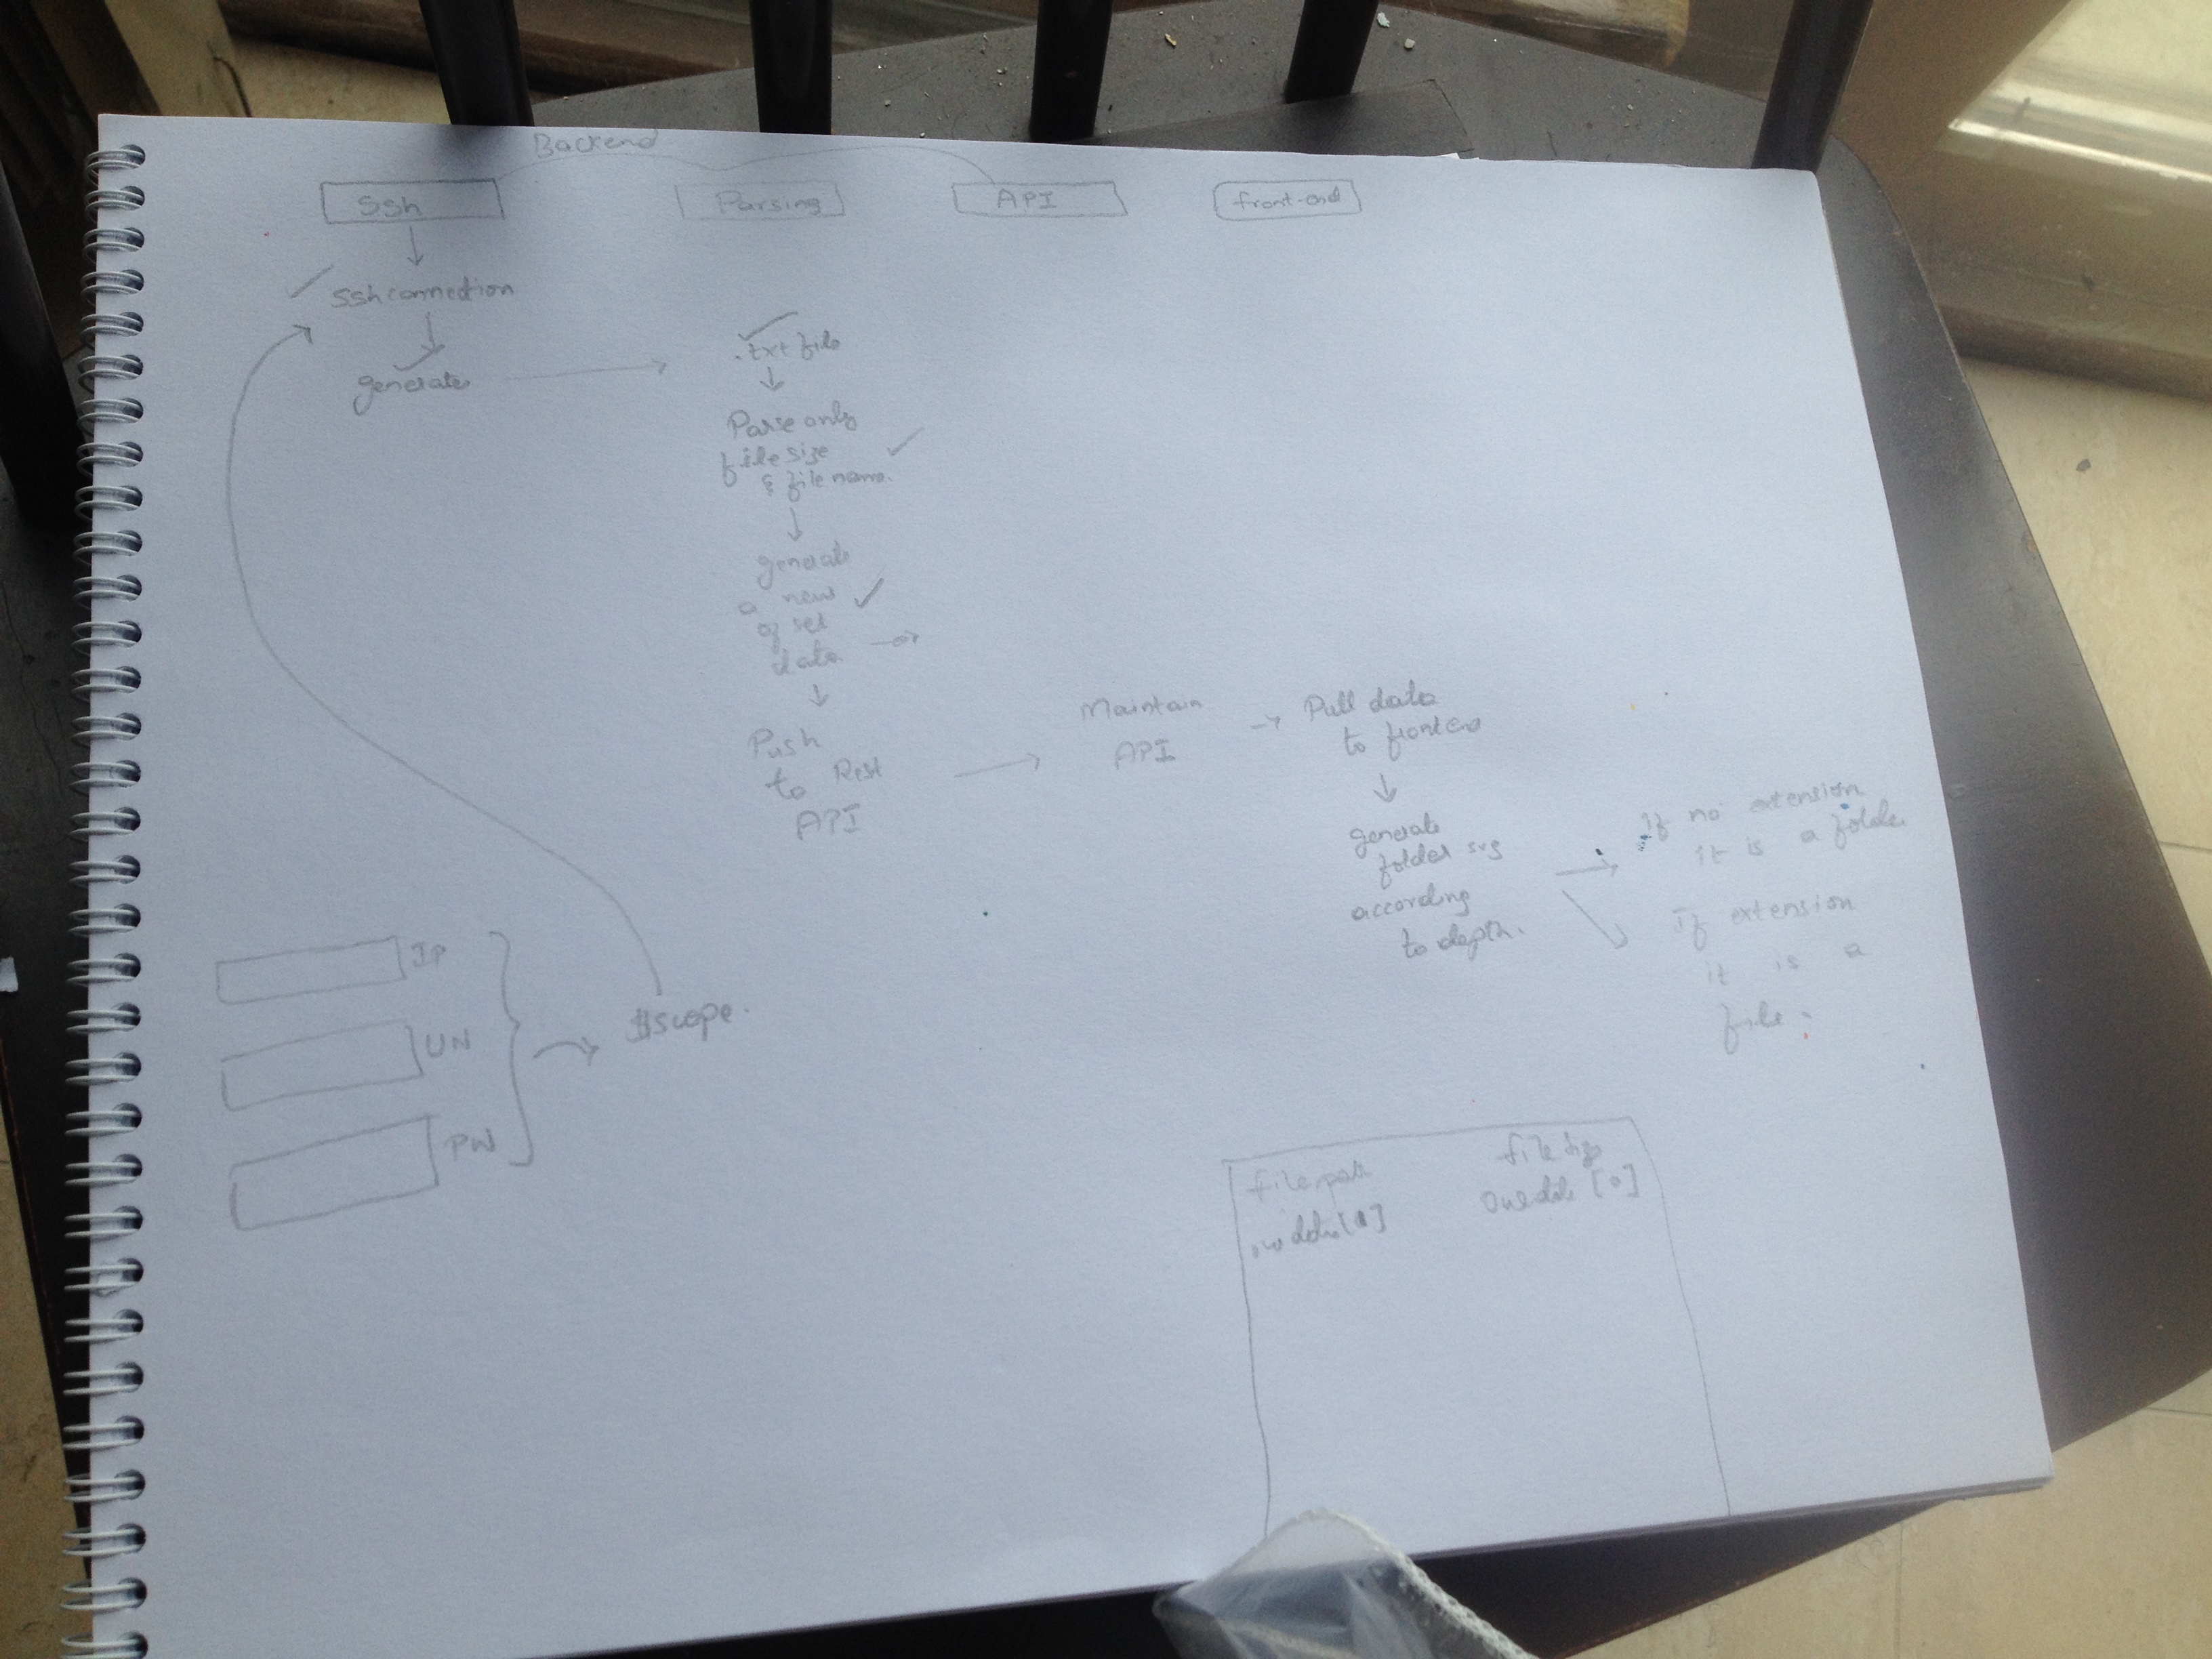 Backend
Ssh
Parsing
API
front-end
Ssh connection
generate
.txt file
Parse only
file size
& file name.
generate
a new
of set
data
Push
to Rest
API
Maintain
API
Pull data
to frontend
generate
folder svg
according
to depth.
If no extension
it is a folder
If extension
it is a
file.
IP
UN
PW
$scope.
file path
file
[0]